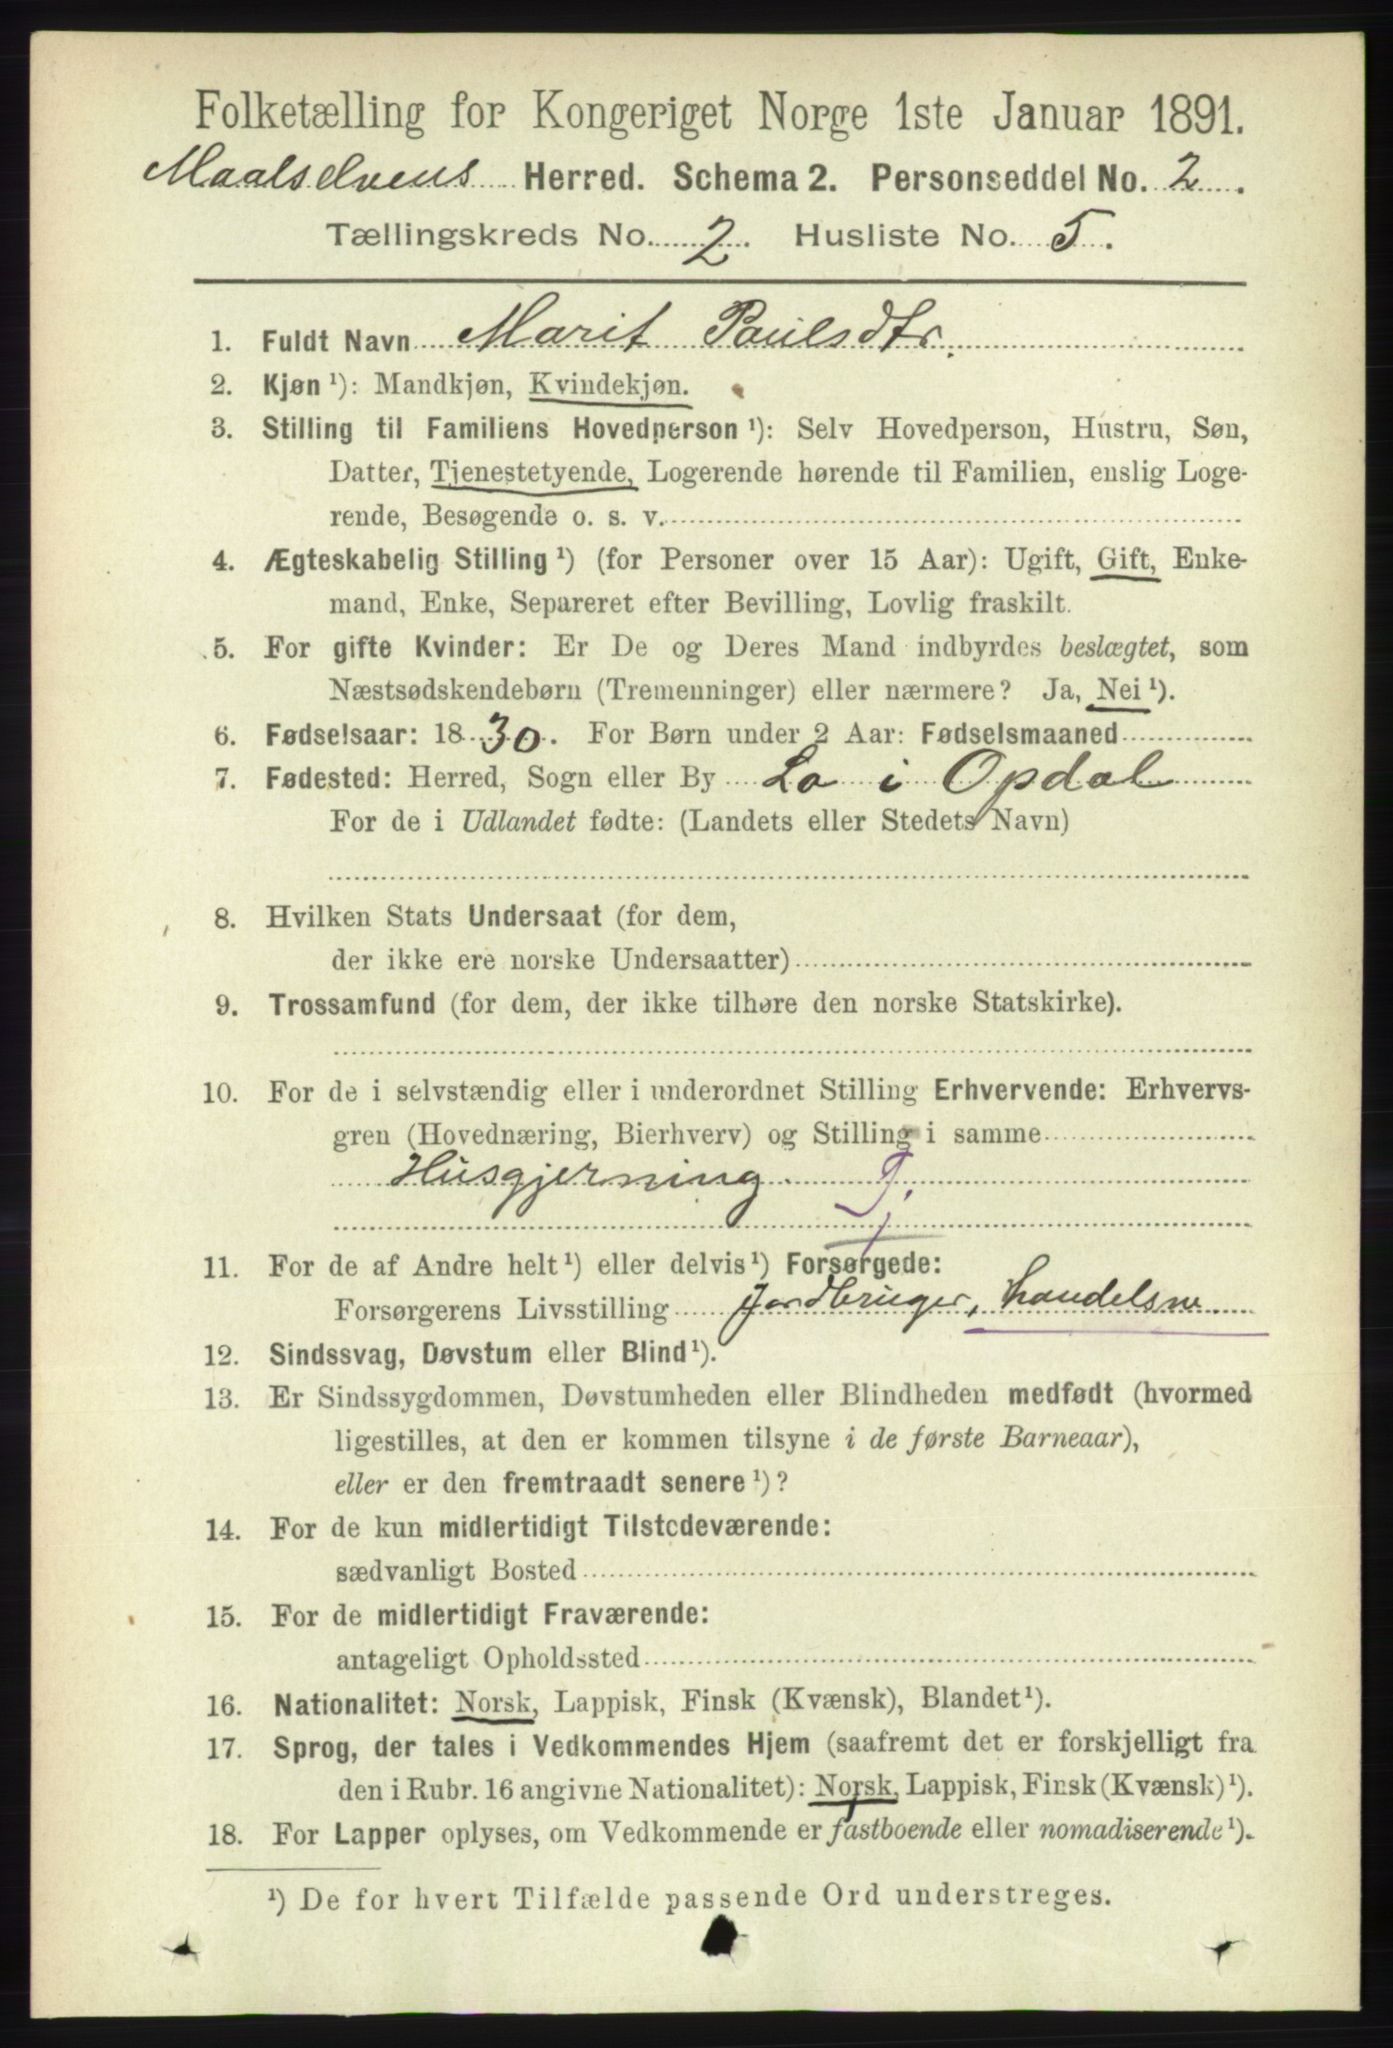 Folketælling for Kongeriget Norge 1ste Januar 1891.
Maalselvens Herred. Schema 2. Personseddel No. 2.
Tællingskreds No. 2. Husliste No. 5.
1. Fuldt Navn Marit Paulsdtr.
2. Kjøn ¹): Mandkjøn, Kvindekjøn.
3. Stilling til Familiens Hovedperson ¹): Selv Hovedperson, Hustru, Søn,
Datter, Tjenestetyende, Logerende hørende til Familien, enslig Loge-
rende, Besøgende o. s. v.
4. Ægteskabelig Stilling ¹) (for Personer over 15 Aar): Ugift, Gift, Enke-
mand, Enke, Separeret efter Bevilling, Lovlig fraskilt.
5. For gifte Kvinder: Er De og Deres Mand indbyrdes beslægtet, som
Næstsødskendebørn (Tremenninger) eller nærmere? Ja, Nei ¹).
6. Fødselsaar: 1830. For Børn under 2 Aar: Fødselsmaaned
7. Fødested: Herred, Sogn eller By Lo i Opdal
For de i Udlandet fødte: (Landets eller Stedets Navn)
8. Hvilken Stats Undersaat (for dem,
der ikke ere norske Undersaatter)
9. Trossamfund (for dem, der ikke tilhøre den norske Statskirke).
10. For de i selvstændig eller i underordnet Stilling Erhvervende: Erhvervs-
gren (Hovednæring, Bierhverv) og Stilling i samme
Husgjerning. T.
11. For de af Andre helt ¹) eller delvis ¹) Forsørgede:
Forsørgerens Livsstilling Jordbruger, handelsm
12. Sindssvag, Døvstum eller Blind ¹).
13. Er Sindssygdommen, Døvstumheden eller Blindheden medfødt (hvormed
ligestilles, at den er kommen tilsyne i de første Barneaar),
eller er den fremtraadt senere ¹)?
14. For de kun midlertidigt Tilstedeværende:
sædvanligt Bosted
15. For de midlertidigt Fraværende:
antageligt Opholdssted
16. Nationalitet: Norsk, Lappisk, Finsk (Kvænsk), Blandet ¹).
17. Sprog, der tales i Vedkommendes Hjem (saafremt det er forskjelligt fra
den i Rubr. 16 angivne Nationalitet): Norsk, Lappisk, Finsk (Kvænsk) ¹).
18. For Lapper oplyses, om Vedkommende er fastboende eller nomadiserende ¹).
¹) De for hvert Tilfælde passende Ord understreges.